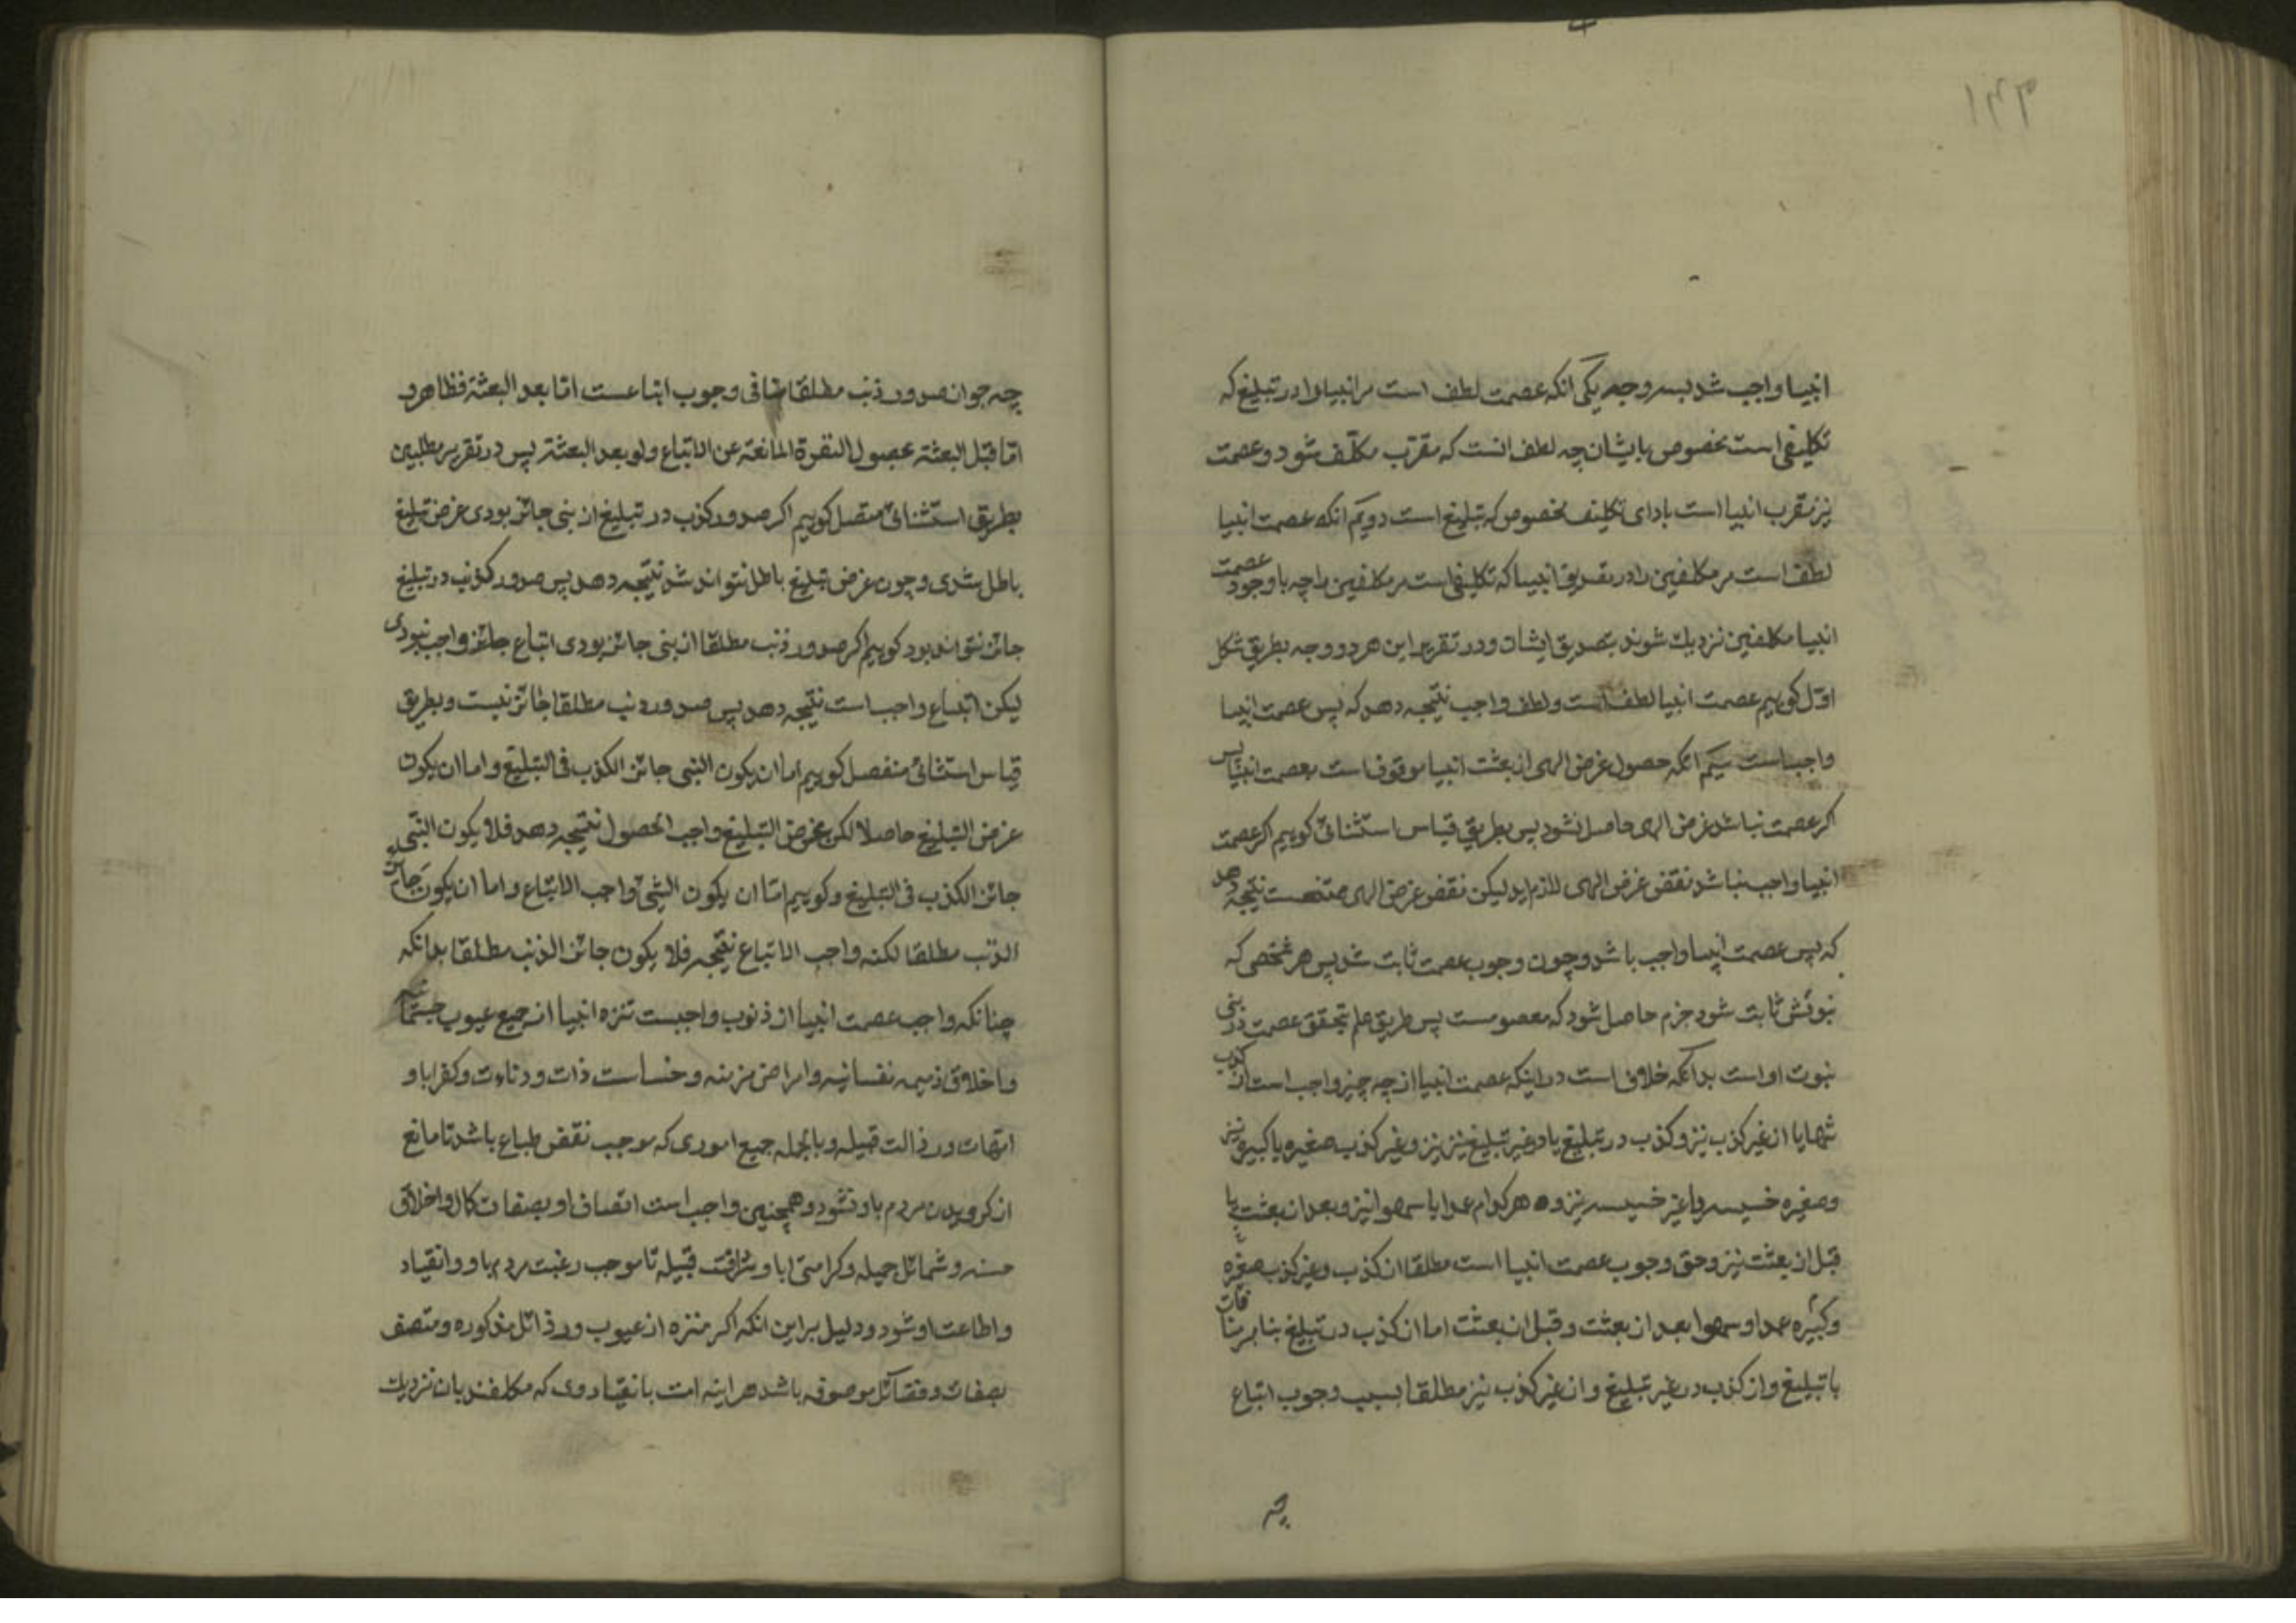 انبیا واجب شد بسه وجه یکی انکه عصمت لطف است مر انبیا را در تبلیغ که
تکلیفی است مخصوص بایشان چه لطف انست که مقرب مکلّف شود و عصمت
نیز مقرب انبیا است بادای تکلیف مخصوص که تبلیغ است دویّم انکه عصمت انبیا
لطف است مر مکلفین را در تصدیق انبیا که تکلیفی است مر مکلفین را چه با وجود عصمت
انبیا مکلفین نزدیک شوند بتصدیق ایشان و در تقریر این هر دو وجه بطریق شکل
اوّل کوییم عصمت انبیا لطف است و لطف واجب نتیجه دهد که پس عصمت انبیا
واجب است سیّم انکه حصول غرض الهی از بعثت انبیا موقوف است بعصمت انبیا پس
اکر عصمت نباشد غرض الهی حاصل نشود پس بطریق قیاس استثنائی کوییم اکر عصمت
انبیا واجب نباشد نقض غرض الهی لازم اید لیکن نقض غرض الهی ممتنعست نتیجه دهد
که پس عصمت انبیا واجب باشد و چون وجوب عصمت ثابت شد پس هر شخصی که
نبوتش ثابت شود جزم حاصل شود که معصومست پس طریق علم بتحقق عصمت در نبی
نبوت او است بدانکه خلاف است در اینکه عصمت انبیا از چه چیز واجب است از کذب
تنها یا از غیر کذب نیز و کذب در تبلیغ یا در غیر تبلیغ نیز و غیر کذب صغیره یا کبیره نیز
و صغیره خسیسه یا غیر خسیسه نیز و هر کدام عمدا یا سهوا نیز و بعد از بعثت یا
قبل از بعثت نیز و حق وجوب عصمت انبیا است مطلقا از کذب و غیر کذب صغیره
و کبیره عمدا و سهوا بعد از بعثت و قبل از بعثت اما از کذب در تبلیغ بنابر منافات
با تبلیغ و از کذب در غیر تبلیغ و از غیر کذب نیز مطلقا بسبب وجوب اتباع
چه
چه جواز صدور ذنب مطلقا منافی وجوب اتباعست امّا بعد البعثة فظاهر و
امّا قبل البعثة فحصول النفرة المانعة عن الاتباع ولو بعد البعثة پس در تقریر مطلبین
بطریق استثنائی متصل کوییم اکر صدور کذب در تبلیغ از نبی جائز بودی غرض تبلیغ
باطل شدی و چون غرض تبلیغ باطل نتواند شد نتیجه دهد پس صدور کذب در تبلیغ
جائز نتواند بود کوییم اکر صدور ذنب مطلقا از نبی جائز بودی اتباع جائز و واجب نبودی
لیکن اتباع واجب است نتیجه دهد پس صدور ذنب مطلقا جائز نیست و بطریق
قیاس استثنائی منفصل کوییم اما ان یکون النبی جائز الکذب فی التبلیغ و اما ان یکون
غرض التبلیغ حاصلا لکن غرض التبلیغ واجب الحصول نتیجه دهد فلا یکون النبی
جائز الکذب فی التبلیغ و کوییم امّا ان یکون النبی واجب الاتباع و اما ان یکون جائز
الذنب مطلقا لکنه واجب الاتباع نتیجه فلا یکون جائز الذنب مطلقا بدانکه
چنانکه واجب عصمت انبیا از ذنوب واجبست تنزه انبیا از جمیع عیوب جسمانیه
و اخلاق ذمیمه نفسانیه و امراض مزمنه و خساست ذات و دناءت و کفر ابا و
امّهات و رذالت قبیله و بالجمله جمیع اموری که موجب نقض طباع باشد تا مانع
از کرویدن مردم باو نشود و همچنین واجب است اتصاف او بصفات کمال و اخلاق
حسنه و شمائل جمیله و کرامتی ابا و شرافت قبیله تا موجب رغبت مردم باو و انقیاد
و اطاعت او شود و دلیل بر این انکه اکر منزه از عیوب و رذائل مذکوره و متصف
بصفات و فضائل موصوفه باشد هر اینه امت بانقیاد وی که مکلفند بان نزدیک